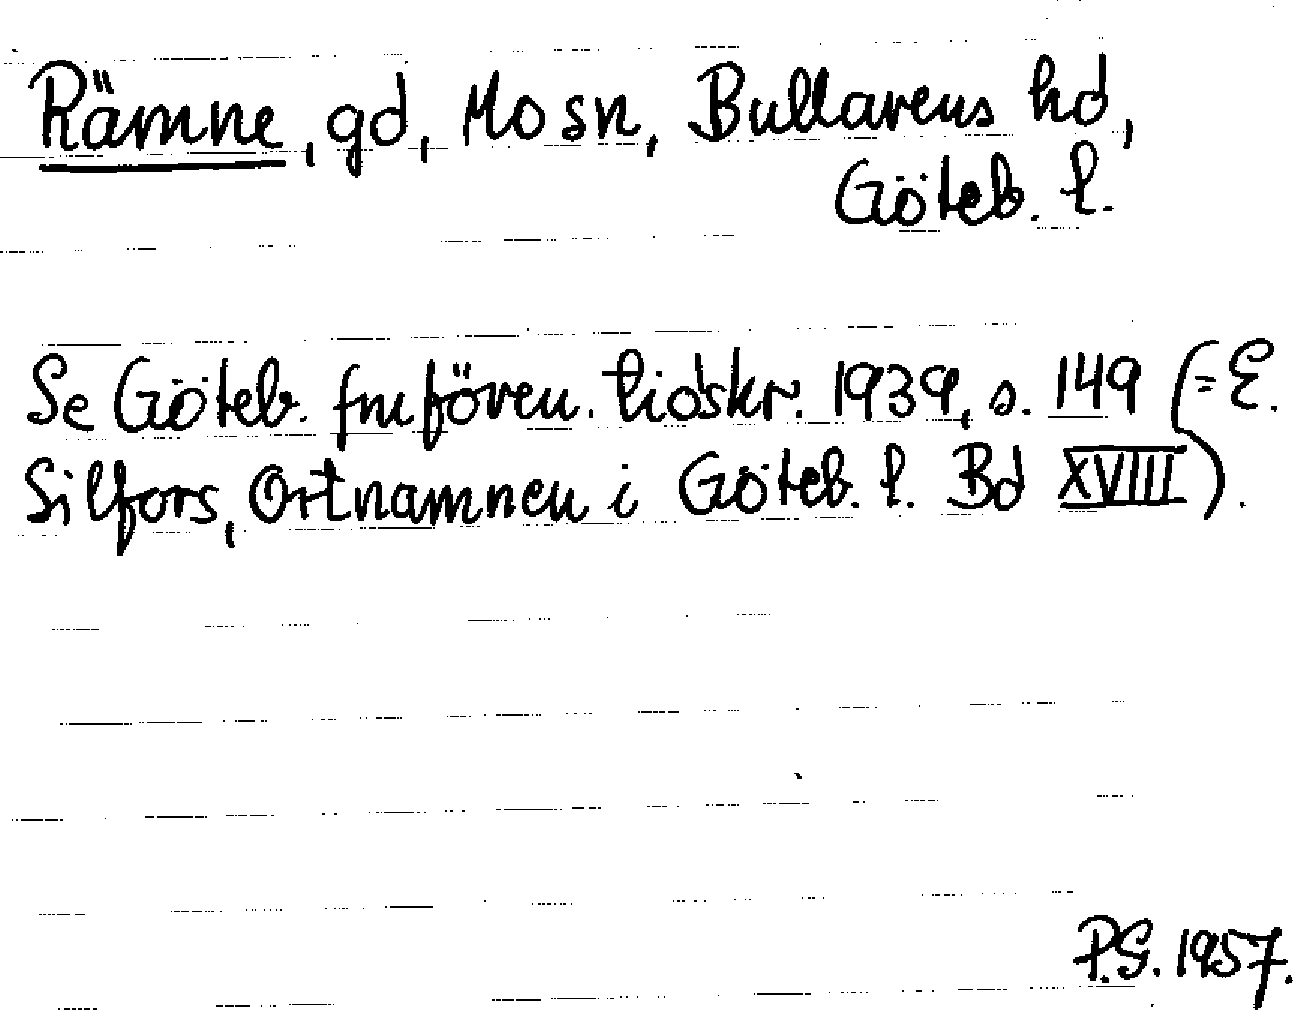 Rämne, gd, Mo sn, Bullarens hd,
Göteb. l.
Se Göteb. fmfören. tidskr. 1939, s. 149 (= E.
Silfors, Ortnamnen i Göteb. l. Bd XVIII).
P.G. 1957.